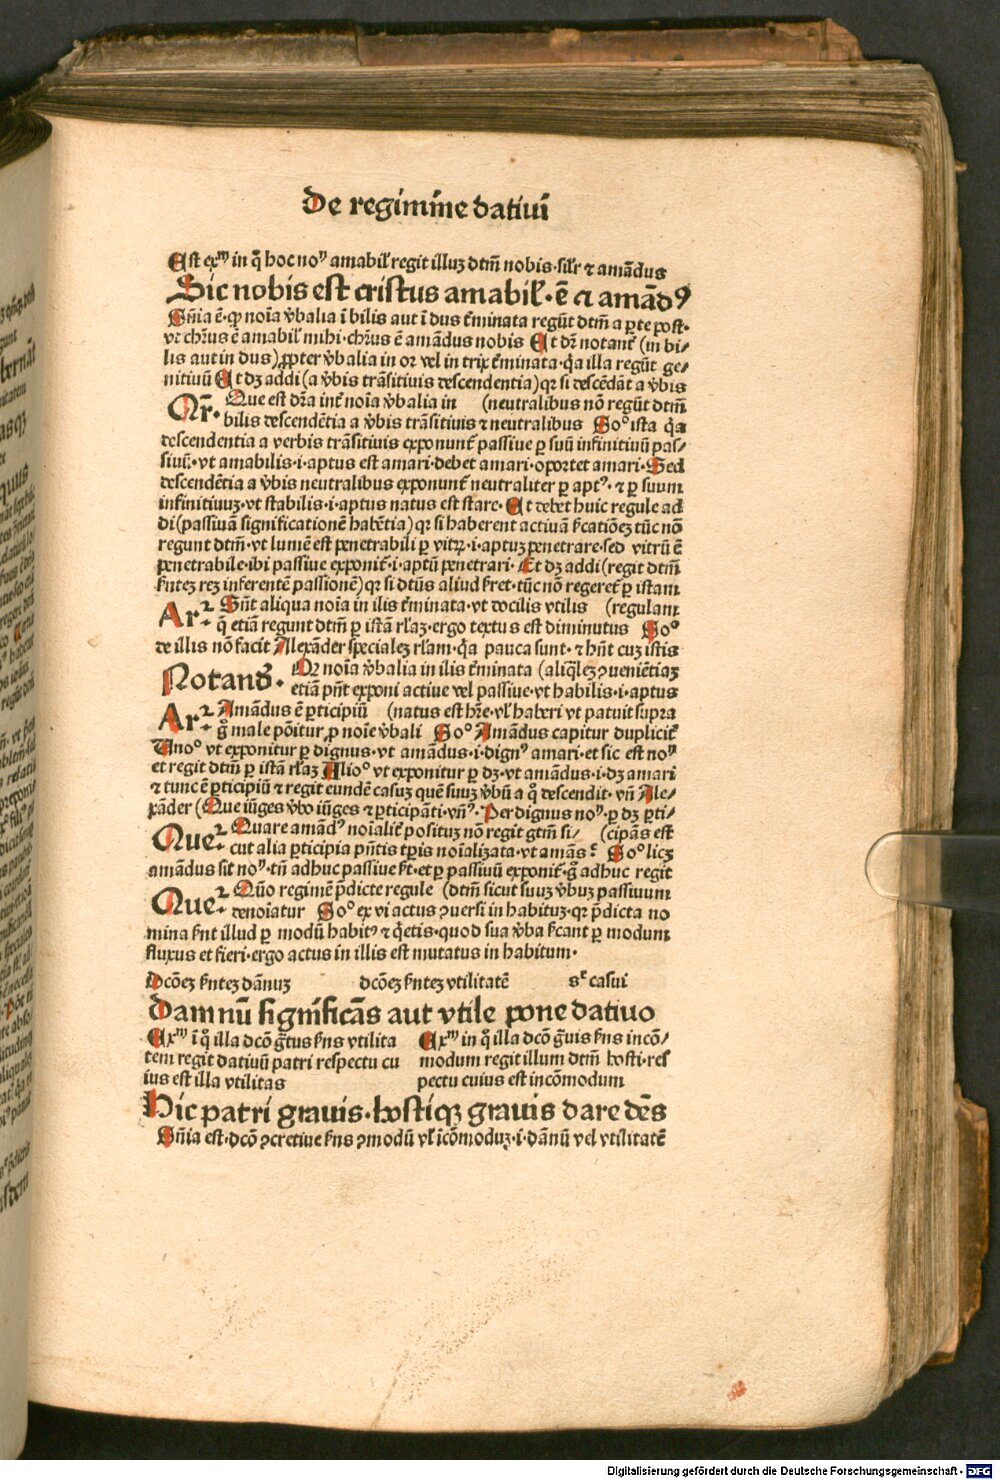 De regimine dativi
Est exm in q̄ hoc noꝰ amabil' regit illuꝫ dtm̄ nobis·silr ⁊ amādus
Sic nobis est cristus amabil'·ē ⁊ amādꝰ
Sn̄ia ē·ꝙ noīa v̄balia ī bilis aut ī dus t̄minata regūt dtm̄ a ꝑte post·
vt chr̄us ē amabil' mihi·chr̄us ē amādus nobis Et dr̄ notant̄ (in bi⸗
lis aut in dus) ꝓpter v̄balia in or vel in trix t̄minata·q̄a illa regūt ge⸗
nitiuū Et dꝫ addi (a v̄bis trāsitiuis descendentia) qꝛ si descēdāt a v̄bis
Qr̄· Que est dr̄a int̄ noīa v̄balia in (neutralibus nō regūt dtm̄
bilis descendētia a v̄bis trāsitiuis ⁊ neutralibus So° ista q̄a
descendentia a verbis trāsitiuis exponunt̄ passiue ꝑ suū infinitiuū pas⸗
siuū·vt amabilis·i·aptus est amari·debet amari·oportet amari·Sed
descendētia a v̄bis neutralibus exponunt̄ neutraliter ꝑ aptꝰ·⁊ ꝑ suum
infinitiuuꝫ·vt stabilis·i·aptus natus est stare·Et debet huic regule ad
di (passiuā significationē habētia) qꝛ si haberent actiuā s̄catiōeꝫ tūc nō
regunt dtm̄·vt lumē est penetrabili ꝑ vitꝝ·i·aptuꝫ penetrare·sed vitrū ē
penetrabile·ibi passiue exponit̄·i·aptū penetrari·Et dꝫ addi (regit dtm̄
s̄nteꝫ reꝫ inferentē passionē) qꝛ si dtūs aliud s̄ret·tūc nō regeret̄ ꝑ istam
Ar²· Sūt aliqua noīa in ilis t̄minata·vt docilis vtilis (regulam
q̄ etiā regunt dtm̄ ꝑ istā rl'aꝫ·ergo textus est diminutus So°
de illis nō facit Alexāder specialeꝫ rl'am·q̄a pauca sunt·⁊ hn̄t cuꝫ istis
Notand̄· Qꝛ noīa v̄balia in ilis t̄minata (aliq̄leꝫ ꝯueniētiaꝫ
etiā pn̄t exponi actiue vel passiue·vt habilis·i·aptus
Ar²· Amādus ē ꝑticipiū (natus est hr̄e·vl' haberi vt patuit supra
g̊ male pōitur ꝓ noīe v̄bali So° Amādus capitur duplicit̄
Uno° vt exponitur ꝑ dignus·vt amādus·i·dignꝰ amari·et sic est noꝰ
et regit dtm̄ ꝑ istā rl'aꝫ Alio° vt exponitur ꝑ dꝫ·vt amādus·i·dꝫ amari
⁊ tunc ē ꝑticipiū ⁊ regit eundē casuꝫ quē suuꝫ v̄bū a q̊ descendit·vn̄ Ale⸗
xāder (Que iūges v̄bo iūges ⁊ ꝑticipāti·vn̄ꝰ·Per dignus noꝰ·ꝑ dꝫ ꝑti⸗
Que²· Quare amādꝰ noīalit̄ posituꝫ nō regit gtm̄ si⸗ (cipās est
cut alia ꝑticipia pn̄tis tꝑis noīalizata·vt amās So° licꝫ
amādus sit noꝰ·tn̄ adhuc passiue s̄t·et ꝑ passiuū exponit̄·g̊ adhuc regit
Que²· Quō regimē p̄dicte regule (dtm̄ sicut suuꝫ v̄buꝫ passiuum
denoīatur So° ex vi actus ꝯuersi in habituꝫ·qꝛ p̄dicta no
mina s̄nt illud ꝑ modū habitꝰ ⁊ q̄etis·quod sua v̄ba s̄cant ꝑ modum
fluxus et fieri·ergo actus in illis est mutatus in habitum·
Dcōeꝫ s̄nteꝫ dānuꝫ dcōeꝫ s̄nteꝫ vtilitatē casui
Damnū significās aut vtile pone datiuo
Exm ī q̊ illa dcō g̊tus s̄ns vtilita
tem regit datiuū patri respectu cu
ius est illa vtilitas
Exm in q̊ illa dcō g̊uis s̄ns incō⸗
modum regit illum dtm̄ hosti·res
pectu cuius est incōmodum
Hic patri grauis·hostiqꝫ grauis dare dēs
Sn̄ia est·dcō ꝯcretiue s̄ns ꝯmodū vl' icōmoduꝫ·i·dānū vel vtilitatē
Digitalisierung gefördert durch die Deutsche Forschungsgemeinschaft - DFG